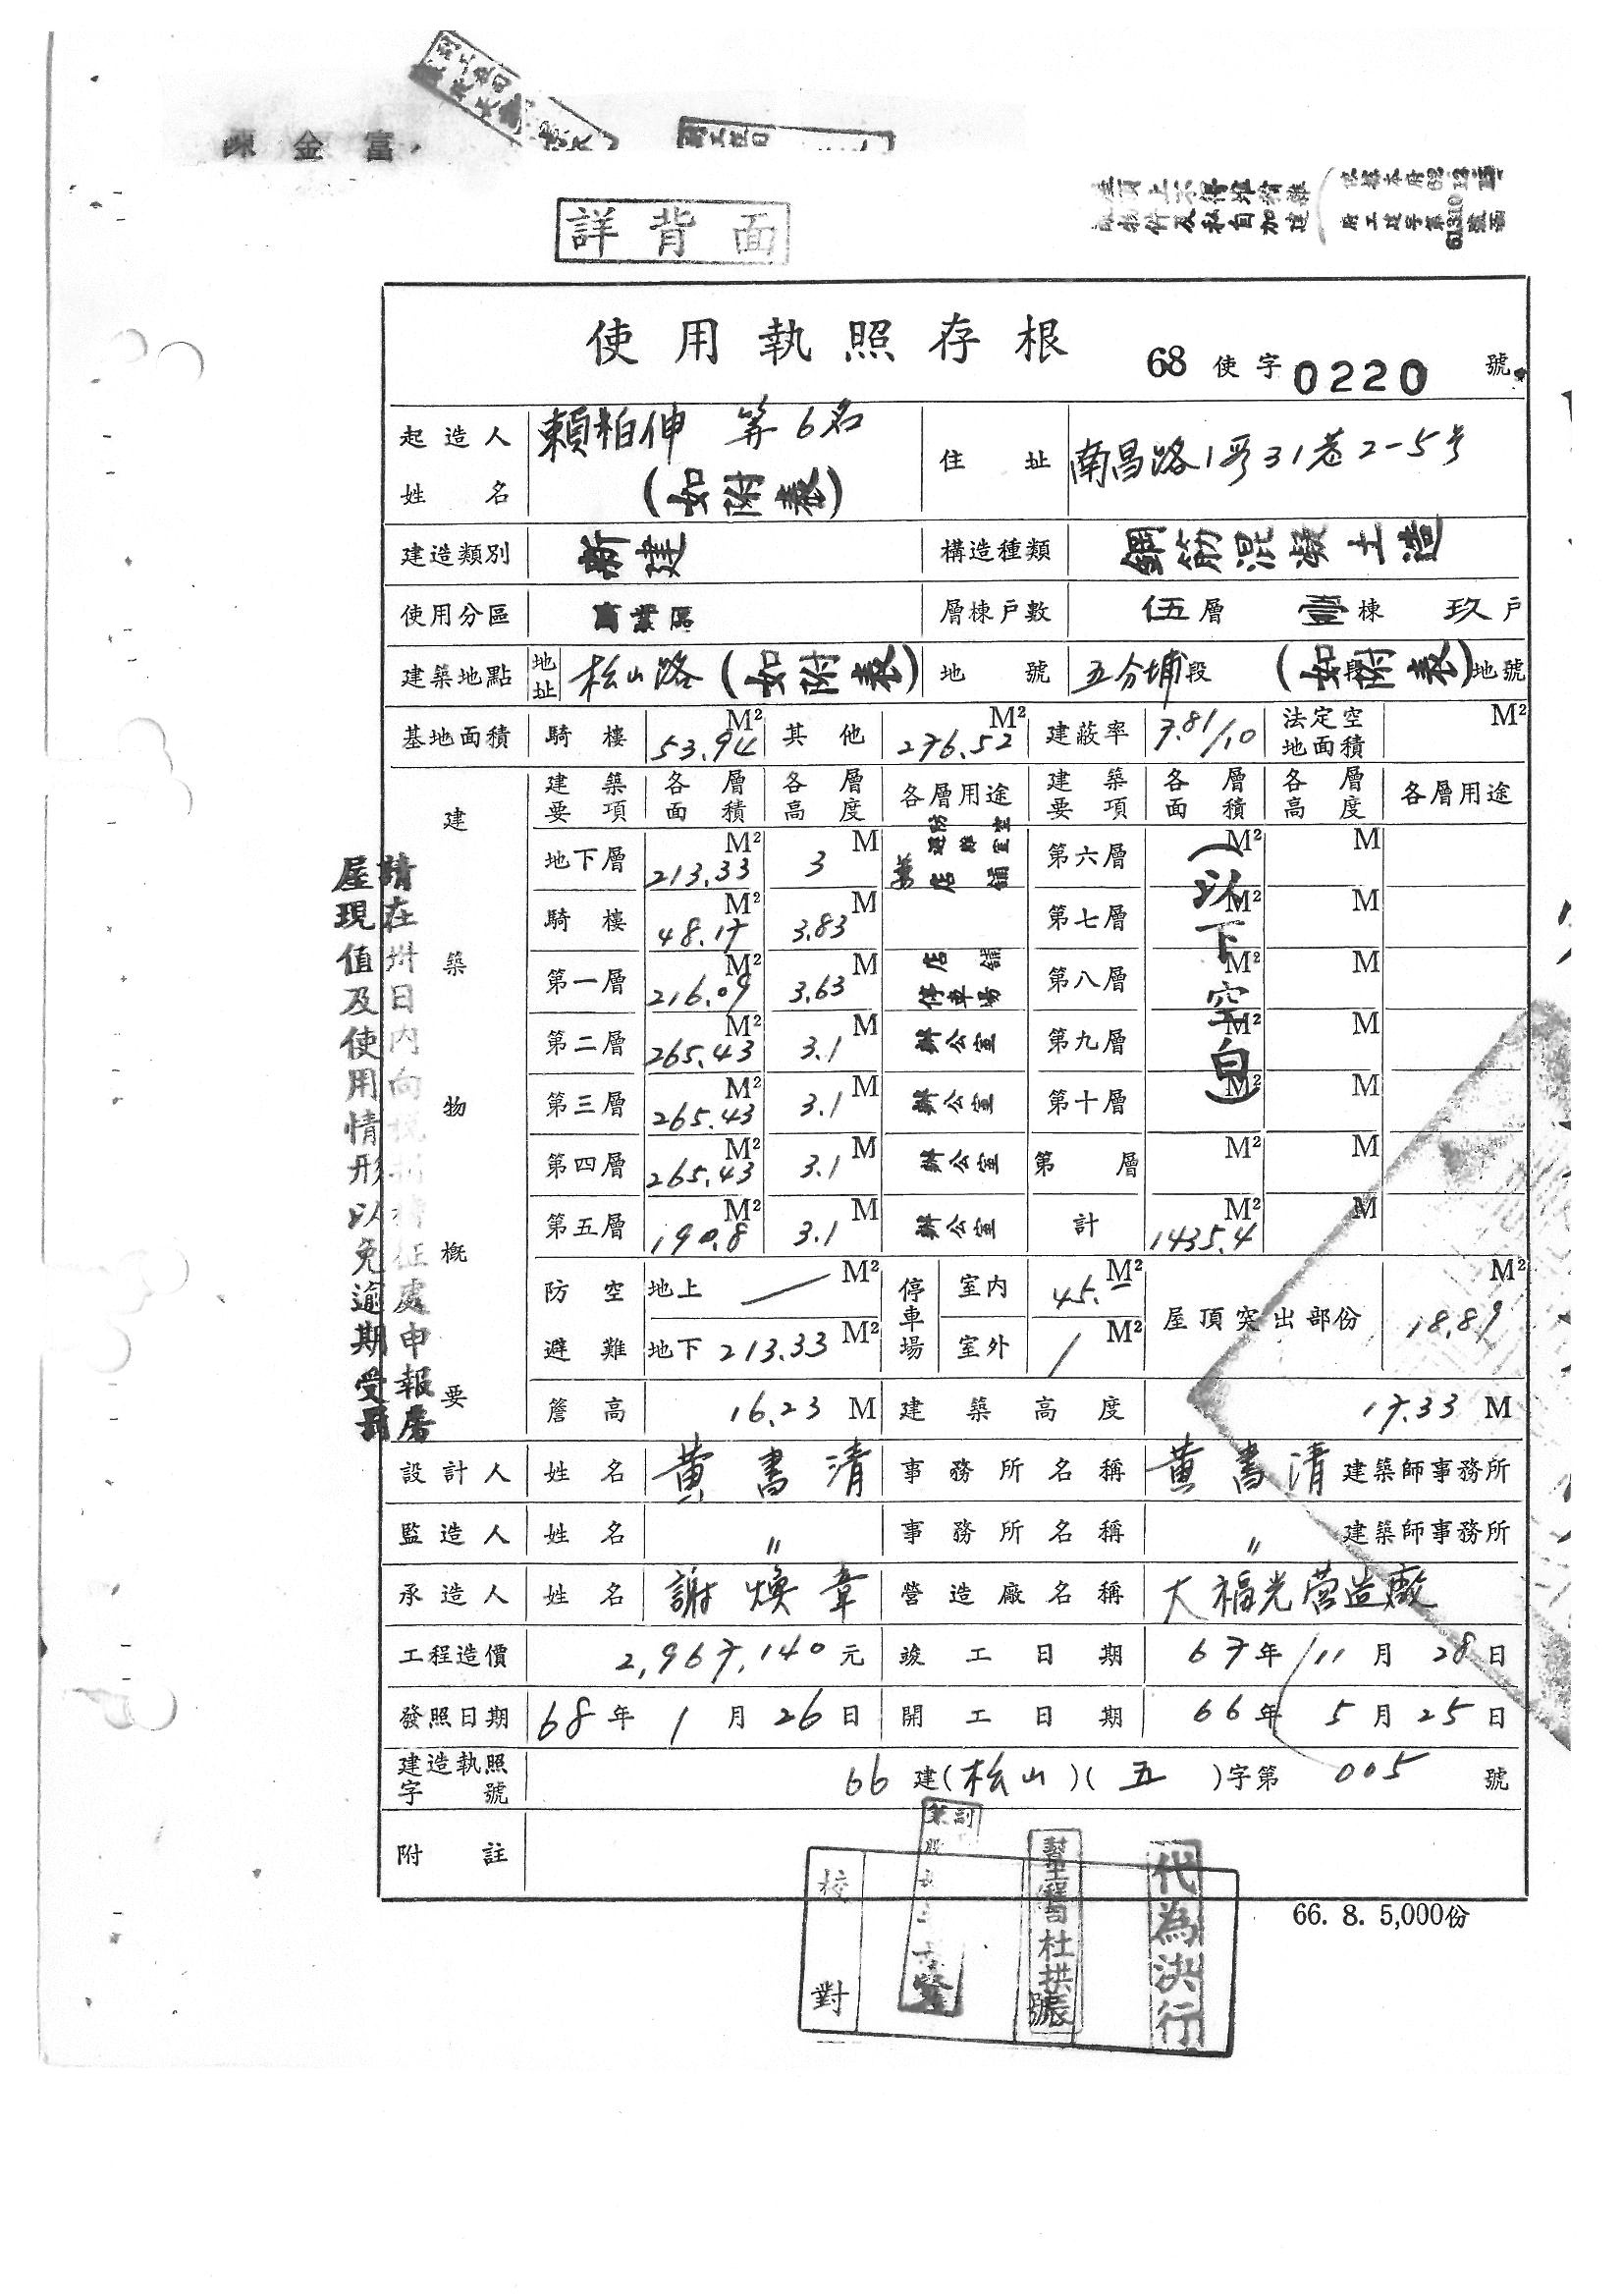 陳金富
詳背面
使用執照存根
68 使字 0220 號
起造人姓名 賴柏伸 等6名 (如附表) 住址 南昌路1段31巷2-5号
建造類別 新建 構造種類 鋼筋混凝土造
使用分區 商業區 層棟戶數 伍層 壹棟 玖戶
建築地點 地址 松山路 (如附表) 地號 五分埔段 (如附表) 段 地號
基地面積 騎樓 53.94 M² 其他 276.52 M² 建蔽率 7.81/10 法定空地面積 M²
建築物概要
建築要項 各層面積 各層高度 各層用途 建築要項 各層面積 各層高度 各層用途
地下層 213.33 M² 3 M 防空避難室兼店舖 第六層 M² M
騎樓 48.17 M² 3.83 M 第七層 M² M
第一層 216.09 M² 3.63 M 店舖 停車場 第八層 M² M
第二層 265.43 M² 3.1 M 辦公室 第九層 M² M
第三層 265.43 M² 3.1 M 辦公室 第十層 M² M
(以下空白)
第四層 265.43 M² 3.1 M 辦公室 第 層 M² M
第五層 190.8 M² 3.1 M 辦公室 計 1435.4 M² M
防空避難 地上 — M² 停車場 室內 45.- M² 屋頂突出部份 18.89 M²
地下 213.33 M² 室外 / M²
簷高 16.23 M 建築高度 17.33 M
設計人 姓名 黃書清 事務所名稱 黃書清 建築師事務所
監造人 姓名 〃 事務所名稱 〃 建築師事務所
承造人 姓名 謝煥章 營造廠名稱 大福光营造廠
工程造價 2,967,140元 竣工日期 67年11月28日
發照日期 68年1月26日 開工日期 66年5月25日
建造執照字號 66建(松山)(五)字第005號
附註
請在卅日內向稅捐稽征處申報房
屋現值及使用情形以免逾期受罰
66. 8. 5,000份
校對
代為決行